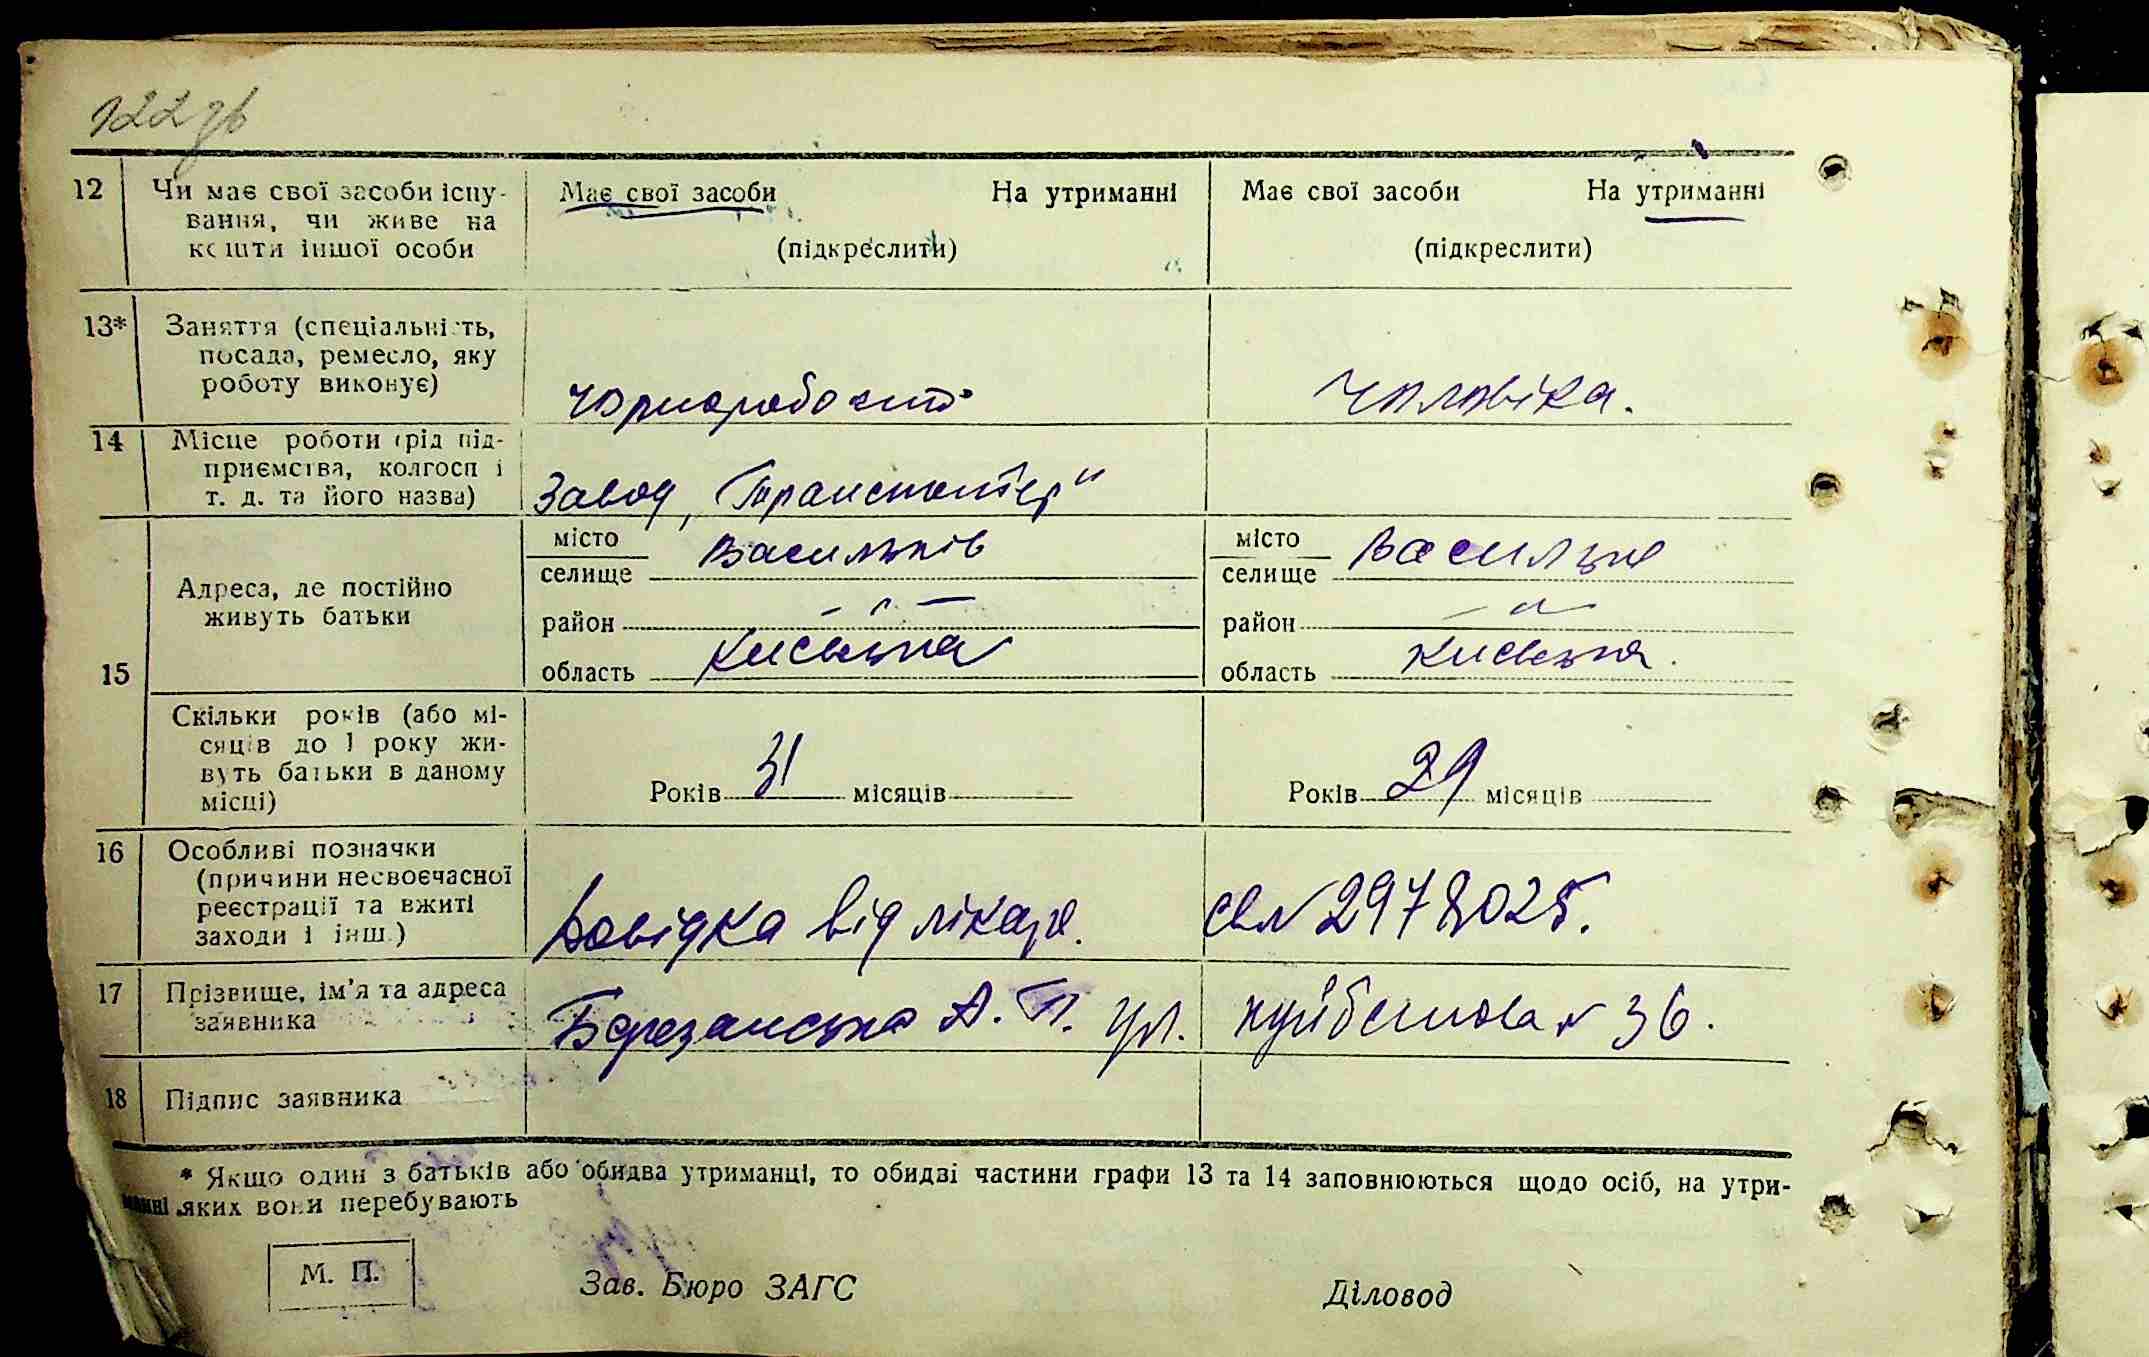 122зв
12 Чи має свої засоби існу- Має свої засоби На утриманні Має свої засоби На утриманні
вання, чи живе на
кошти іншої особи (підкреслити) (підкреслити)
13* Заняття (спеціальність,
посада, ремесло, яку
роботу виконує) чоловіка.
14 Місце роботи (рід під-
приємства, колгосп і
т. д. та його назва) Завод „Транспортер"
15 Адреса, де постійно живуть батьки
місто Васильків місто
селище селище
район — " — район — " —
область Київська область Київська.
Скільки років (або мі-
сяців до 1 року жи-
вуть батьки в даному
місці) Років 31 місяців Років 29 місяців
16 Особливі позначки
(причини несвоєчасної
реєстрації та вжиті
заходи і інш.) Довідка від лікаря. св № 2978025.
17 Прізвище, ім'я та адреса
заявника Березанська А. П. ул. Куйбишева № 36.
18 Підпис заявника
* Якщо один з батьків або обидва утриманці, то обидві частини графи 13 та 14 заповнюються щодо осіб, на утри-
манні яких вони перебувають
М. П. Зав. Бюро ЗАГС Діловод